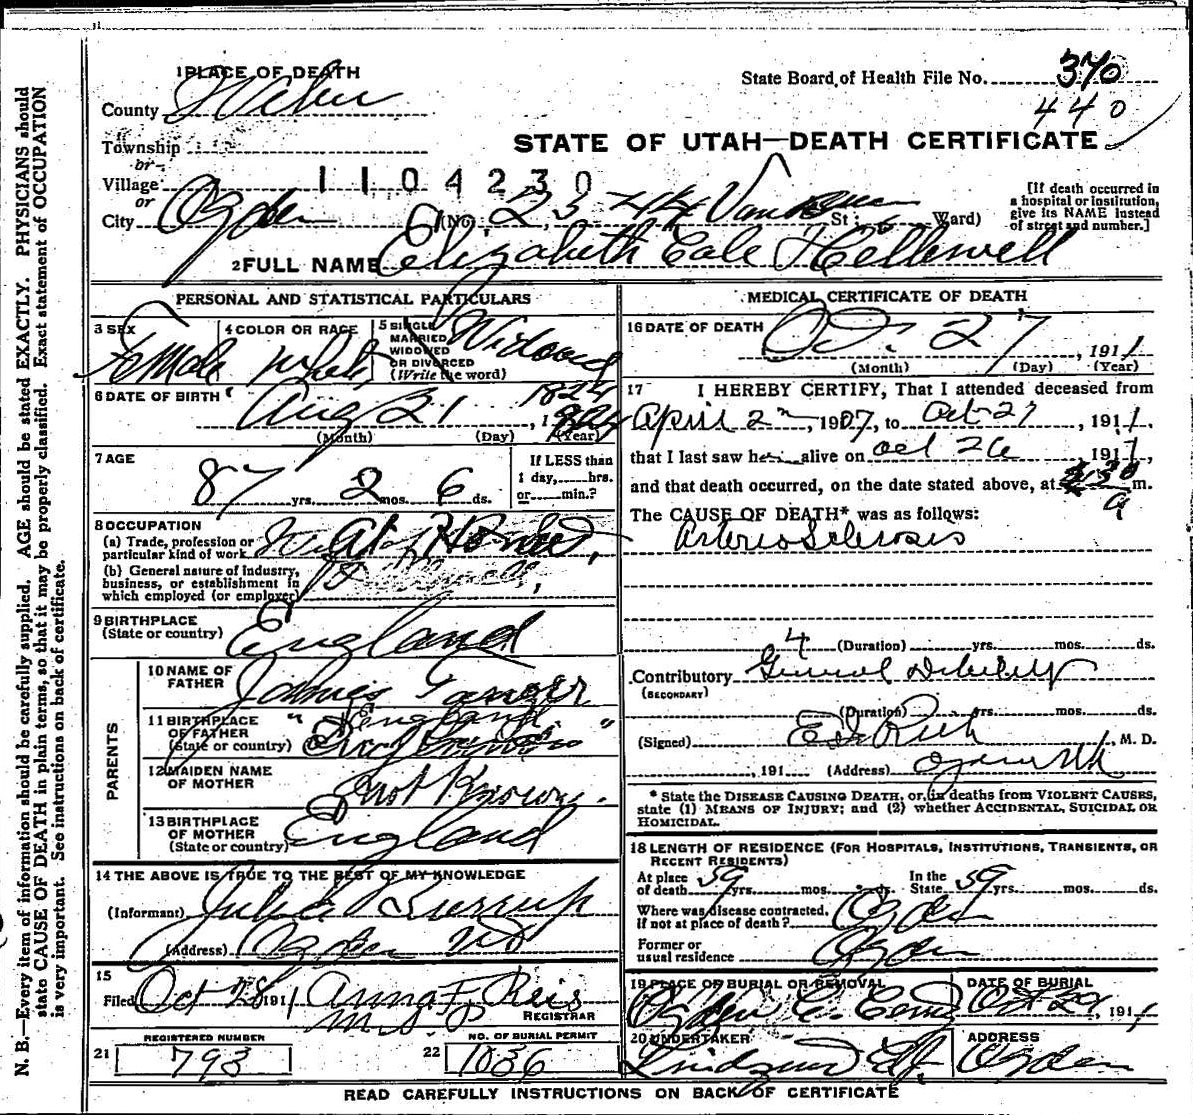 1 PLACE OF DEATH
State Board of Health File No. 370
440
County Weber
Township
STATE OF UTAH—DEATH CERTIFICATE
or
Village
1104230
or
City Ogden (No. 2344 Van Buren St; Ward)
[If death occurred in a hospital or institution, give its NAME instead of street and number.]
2 FULL NAME Elizabeth Eale Hellewell
PERSONAL AND STATISTICAL PARTICULARS
3 SEX Female
4 COLOR OR RACE White
5 SINGLE MARRIED WIDOWED OR DIVORCED (Write the word) Widowed
6 DATE OF BIRTH Aug 21 1824
(Month) (Day) (Year)
7 AGE
87 yrs. 2 mos. 6 ds.
If LESS than 1 day, hrs. or min.?
8 OCCUPATION
(a) Trade, profession or particular kind of work
(b) General nature of industry, business, or establishment in which employed (or employer)
9 BIRTHPLACE (State or country) England
PARENTS
10 NAME OF FATHER James
11 BIRTHPLACE OF FATHER (State or country) England
12 MAIDEN NAME OF MOTHER Not Known.
13 BIRTHPLACE OF MOTHER (State or country) England
14 THE ABOVE IS TRUE TO THE BEST OF MY KNOWLEDGE
(Informant) Julia
(Address) Ogden Ut
15
Filed Oct 28 1911 Anna F. Reis
REGISTRAR
REGISTERED NUMBER
21 793
NO. OF BURIAL PERMIT
22 1036
MEDICAL CERTIFICATE OF DEATH
16 DATE OF DEATH Oct 27, 1911
(Month) (Day) (Year)
17 I HEREBY CERTIFY, That I attended deceased from
April 2, 1907, to Oct 27, 1911,
that I last saw her alive on Oct 26, 1911,
and that death occurred, on the date stated above, at m.
The CAUSE OF DEATH* was as follows:
Arterio Sclerosis
4 (Duration) yrs. mos. ds.
Contributory General Debility
(SECONDARY)
(Duration) yrs. mos. ds.
(Signed) Rich, M. D.
, 191 (Address) Ogden Utah
* State the DISEASE CAUSING DEATH, or, in deaths from VIOLENT CAUSES, state (1) MEANS OF INJURY; and (2) whether ACCIDENTAL, SUICIDAL OR HOMICIDAL.
18 LENGTH OF RESIDENCE (FOR HOSPITALS, INSTITUTIONS, TRANSIENTS, OR RECENT RESIDENTS)
At place of death 59 yrs. mos. ds. In the State 59 yrs. mos. ds.
Where was disease contracted, if not at place of death? Ogden
Former or usual residence Ogden
19 PLACE OF BURIAL OR REMOVAL Ogden C. Cemy
DATE OF BURIAL Oct 29, 1911
20 UNDERTAKER
ADDRESS Ogden
READ CAREFULLY INSTRUCTIONS ON BACK OF CERTIFICATE
N. B.—Every item of information should be carefully supplied. AGE should be stated EXACTLY. PHYSICIANS should
state CAUSE OF DEATH in plain terms, so that it may be properly classified. Exact statement of OCCUPATION
is very important. See instructions on back of certificate.